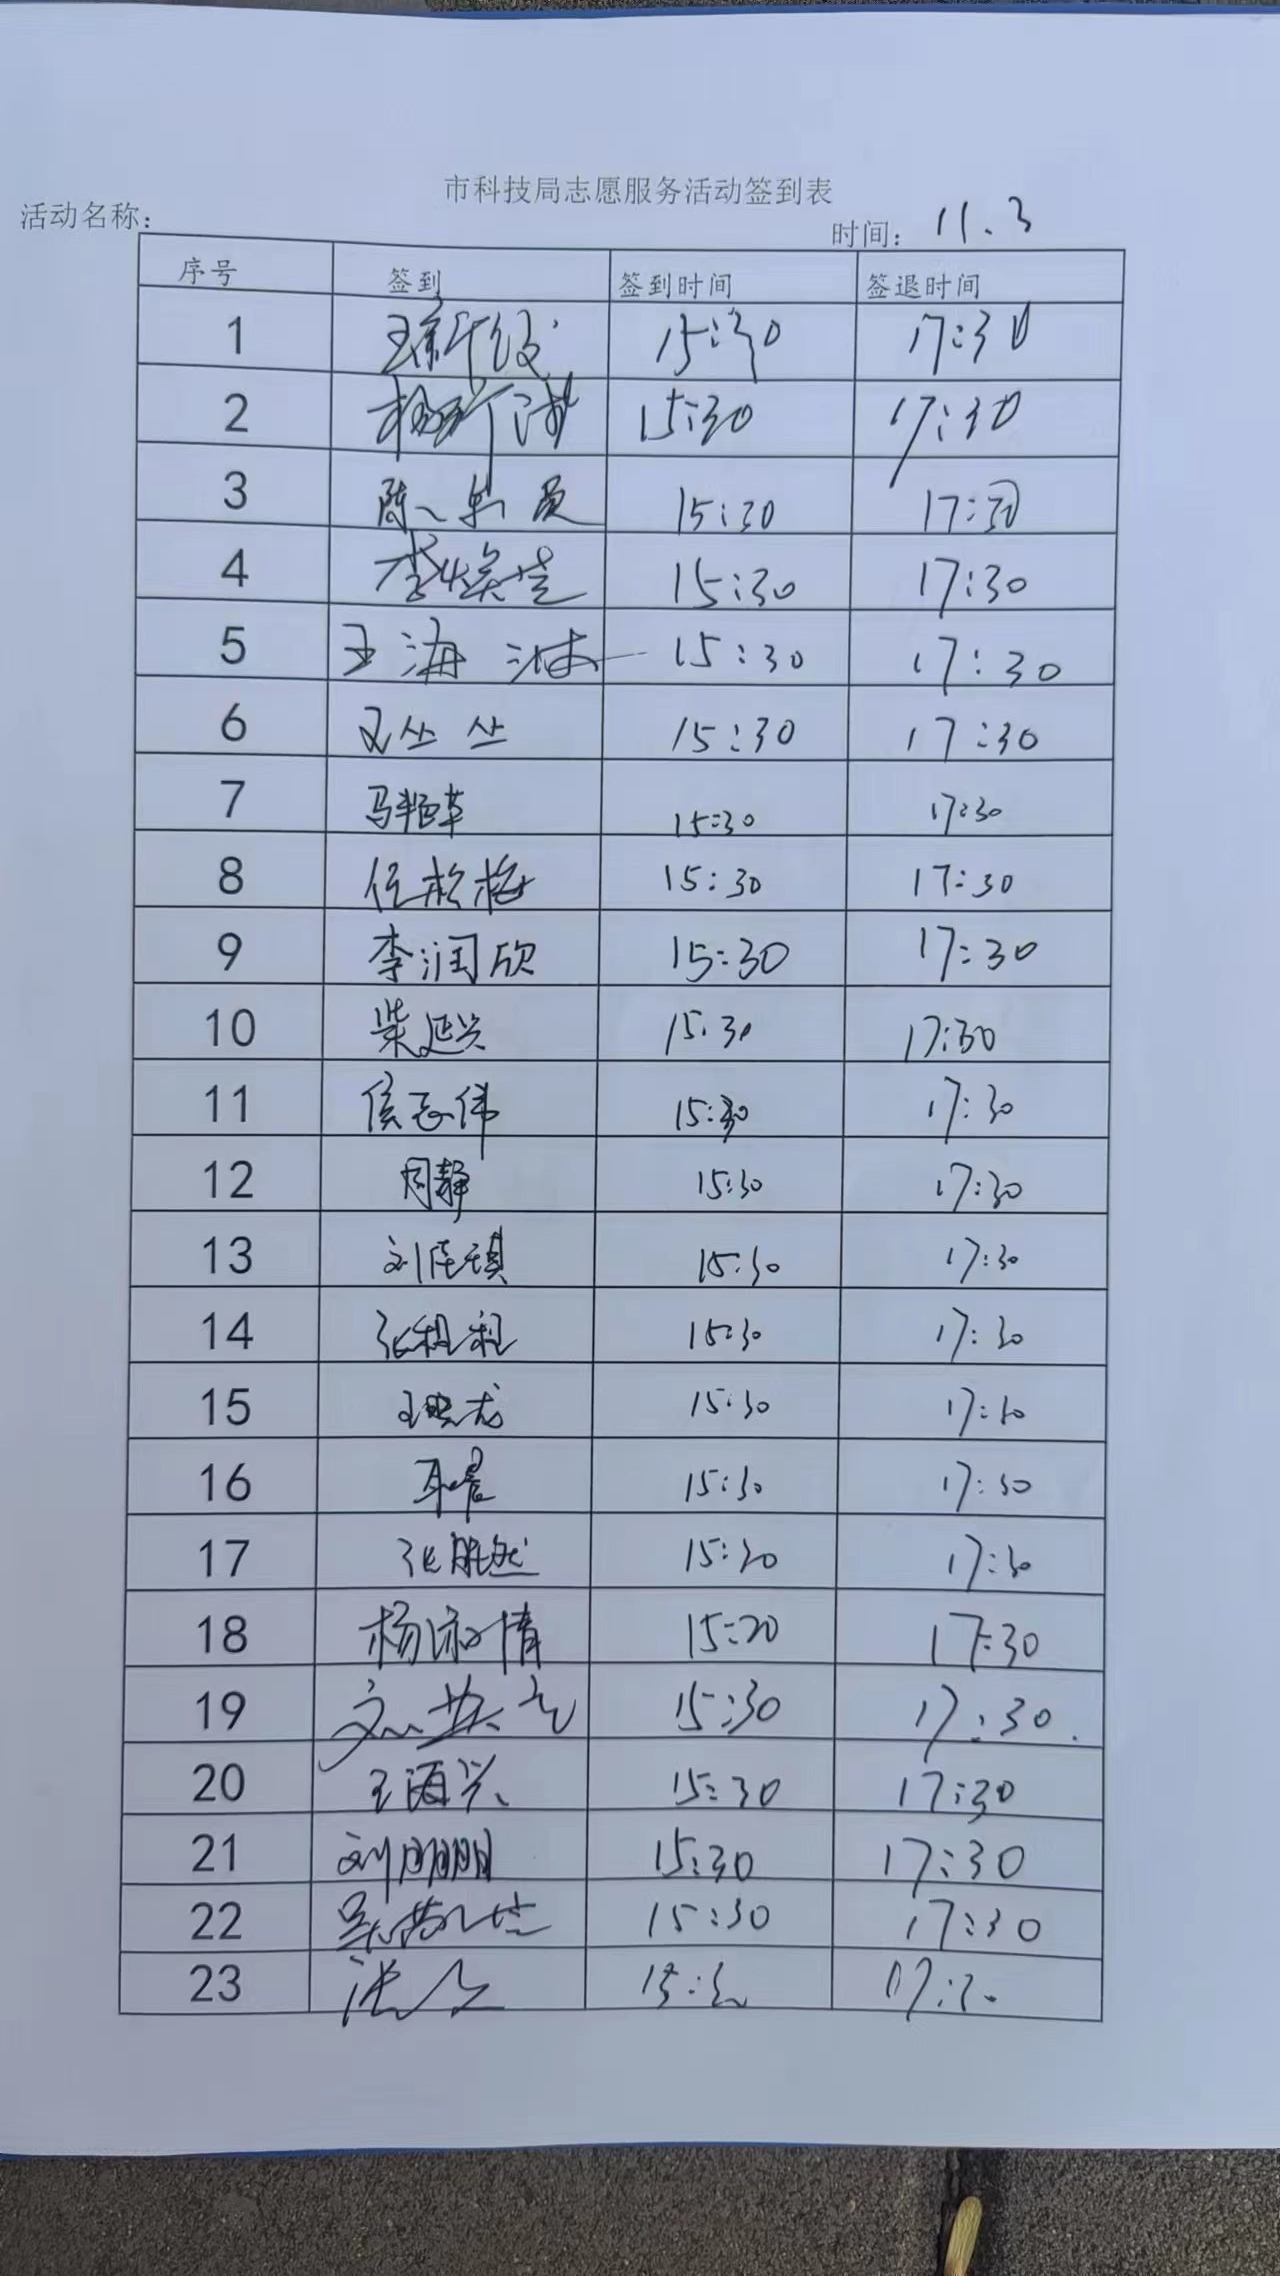 市科技局志愿服务活动签到表
活动名称：
时间： 11.3
序号 签到 签到时间 签退时间
1 15:30 17:30
2 15:30 17:30
3 15:30 17:30
4 15:30 17:30
5 王海 15:30 17:30
6 王丛丛 15:30 17:30
7 马艳革 15:30 17:30
8 任松梅 15:30 17:30
9 李润欣 15:30 17:30
10 柴延兴 15:30 17:30
11 侯志伟 15:30 17:30
12 周静 15:30 17:30
13 刘佳琪 15:30 17:30
14 张程程 15:30 17:30
15 王晓龙 15:30 17:30
16 15:30 17:30
17 张 15:30 17:30
18 杨淑情 15:20 17:30
19 15:30 17:30
20 王海兴 15:30 17:30
21 刘朋朋 15:30 17:30
22 15:30 17:30
23 15:30 17:30